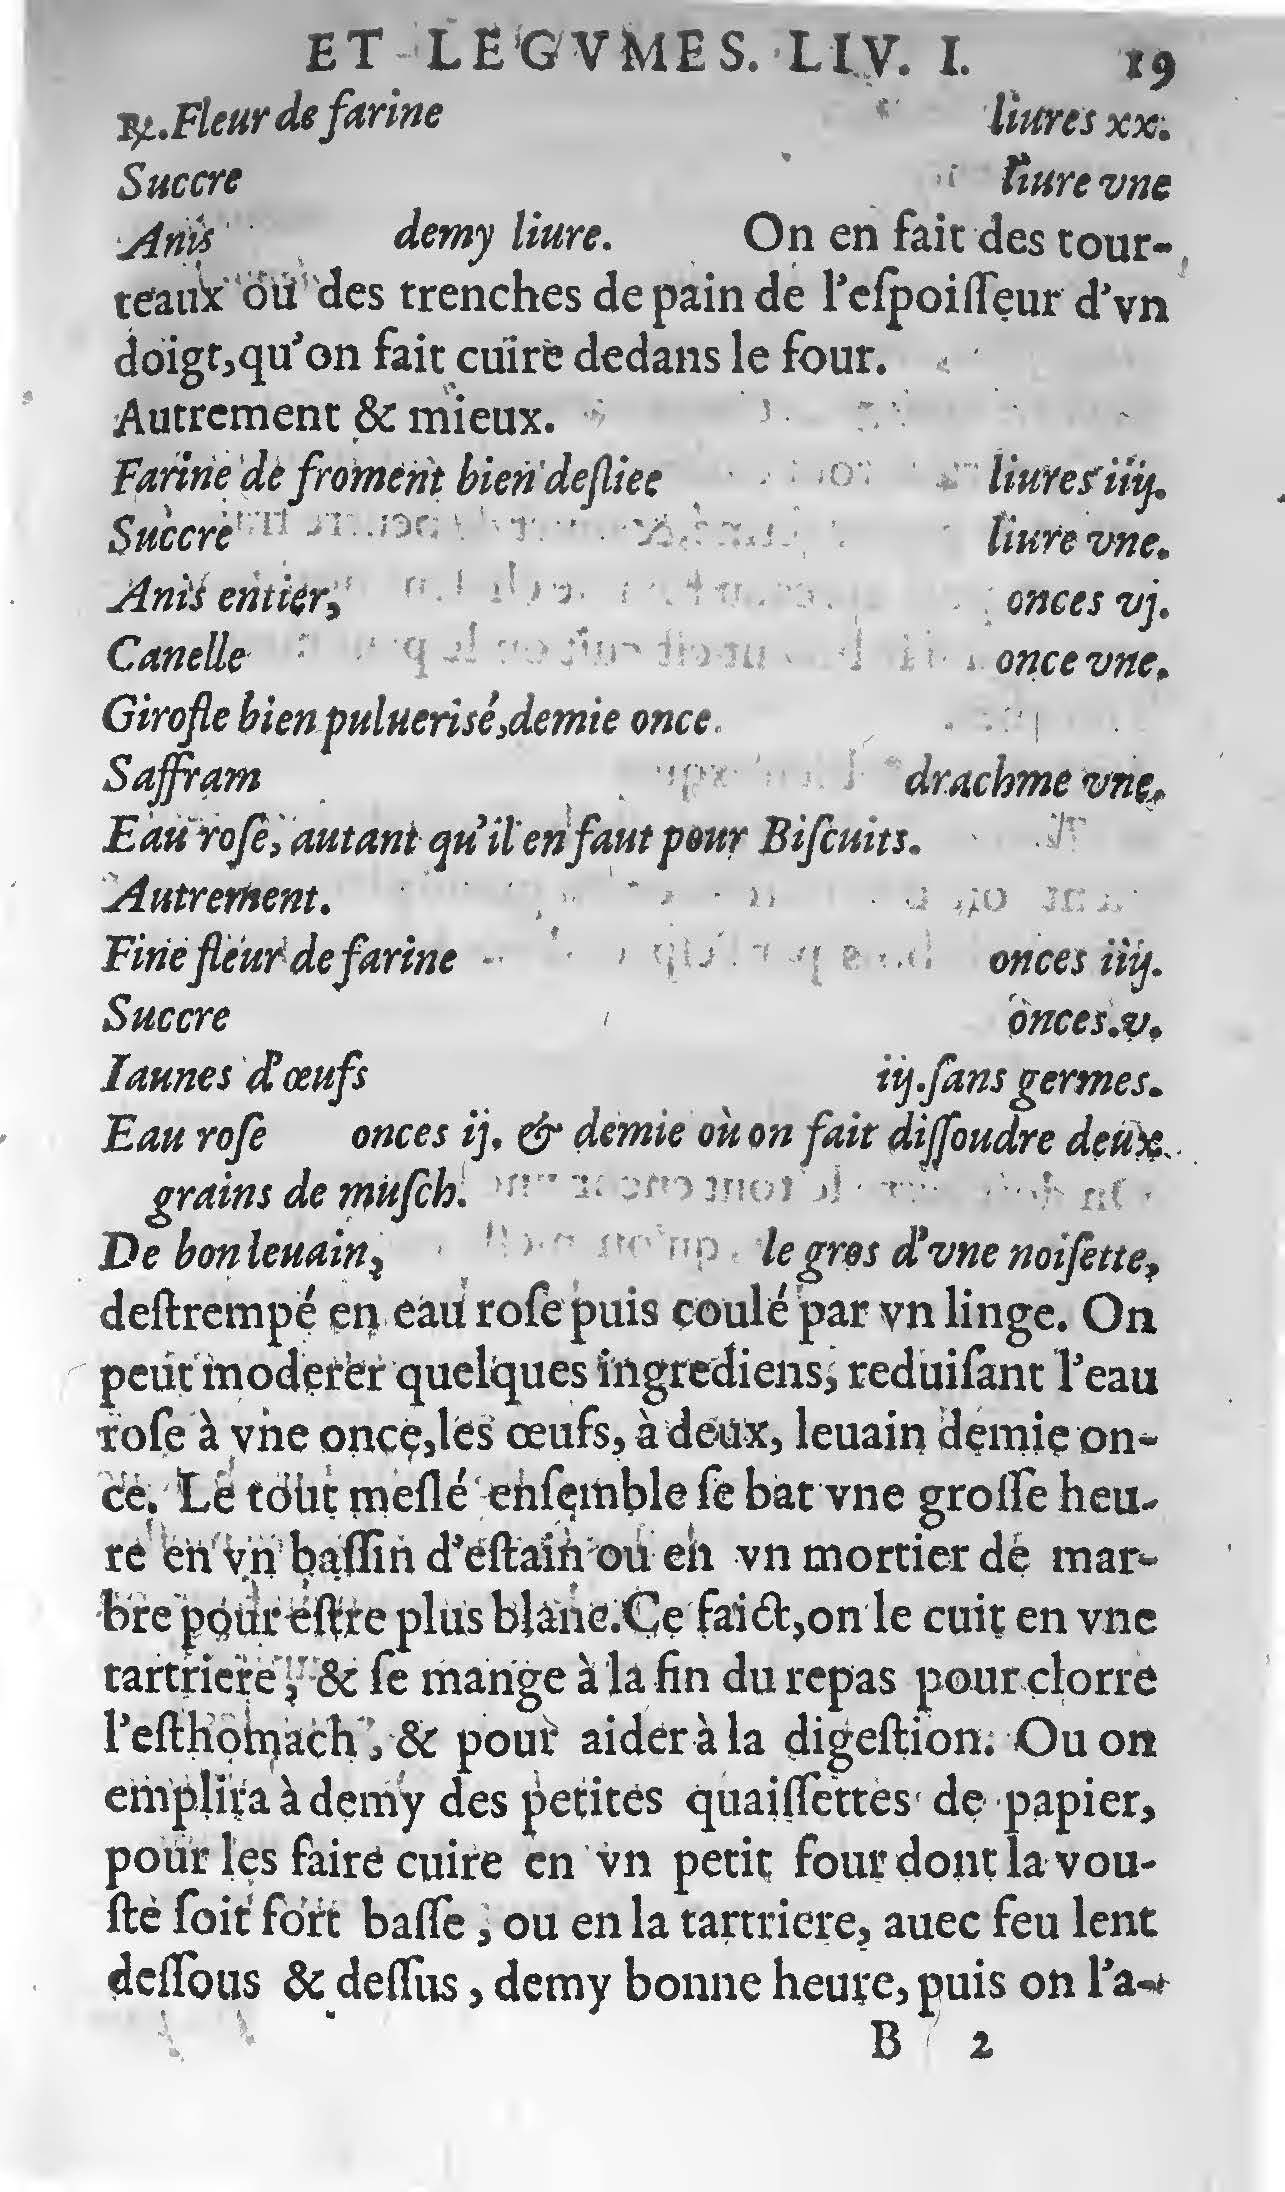 ET LEGVMES. LIV. I. 19
℞. Fleur de farine liures xx.
Succre liure vne
Anis demy liure. On en fait des tour-
teaux ou des trenches de pain de l'eſpoiſſeur d'vn
doigt, qu'on fait cuire dedans le four.
Autrement & mieux.
Farine de froment bien deſliee liures iiij.
Succre liure vne.
Anis entier, onces vj.
Canelle once vne.
Girofle bien puluerisé, demie once.
Saffram drachme vne.
Eau roſe, autant qu'il en faut pour Biſcuits.
Autrement.
Fine fleur de farine onces iiij.
Succre onces.v.
Iaunes d'œufs iij. ſans germes.
Eau roſe onces ij. & demie où on fait diſſoudre deux
grains de muſch.
De bon leuain, le gros d'vne noiſette,
deſtrempé en eau roſe puis coulé par vn linge. On
peut moderer quelques ingrediens, reduiſant l'eau
roſe à vne once, les œufs, à deux, leuain demie on-
ce. Le tout meſlé enſemble ſe bat vne groſſe heu-
re en vn baſſin d'eſtain ou en vn mortier de mar-
bre pour eſtre plus blanc. Ce faict, on le cuit en vne
tartriere, & ſe mange à la fin du repas pour clorre
l'eſthomach, & pour aider à la digeſtion. Ou on
emplira à demy des petites quaiſſettes de papier,
pour les faire cuire en vn petit four dont la vou-
ſte ſoit fort baſſe, ou en la tartriere, auec feu lent
deſſous & deſſus, demy bonne heure, puis on l'a-
B 2